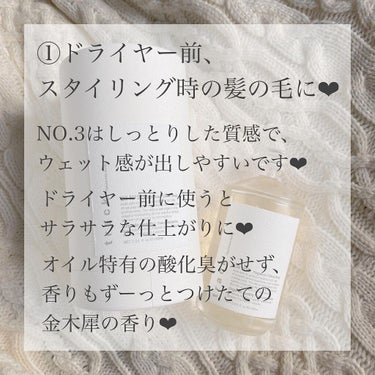 ①ドライヤー前、
スタイリング時の髪の毛に❤
NO.3はしっとりした質感で、
ウェット感が出しやすいです❤
ドライヤー前に使うと
サラサラな仕上がりに❤
オイル特有の酸化臭がせず、
香りもずーっとつけたての
金木犀の香り❤